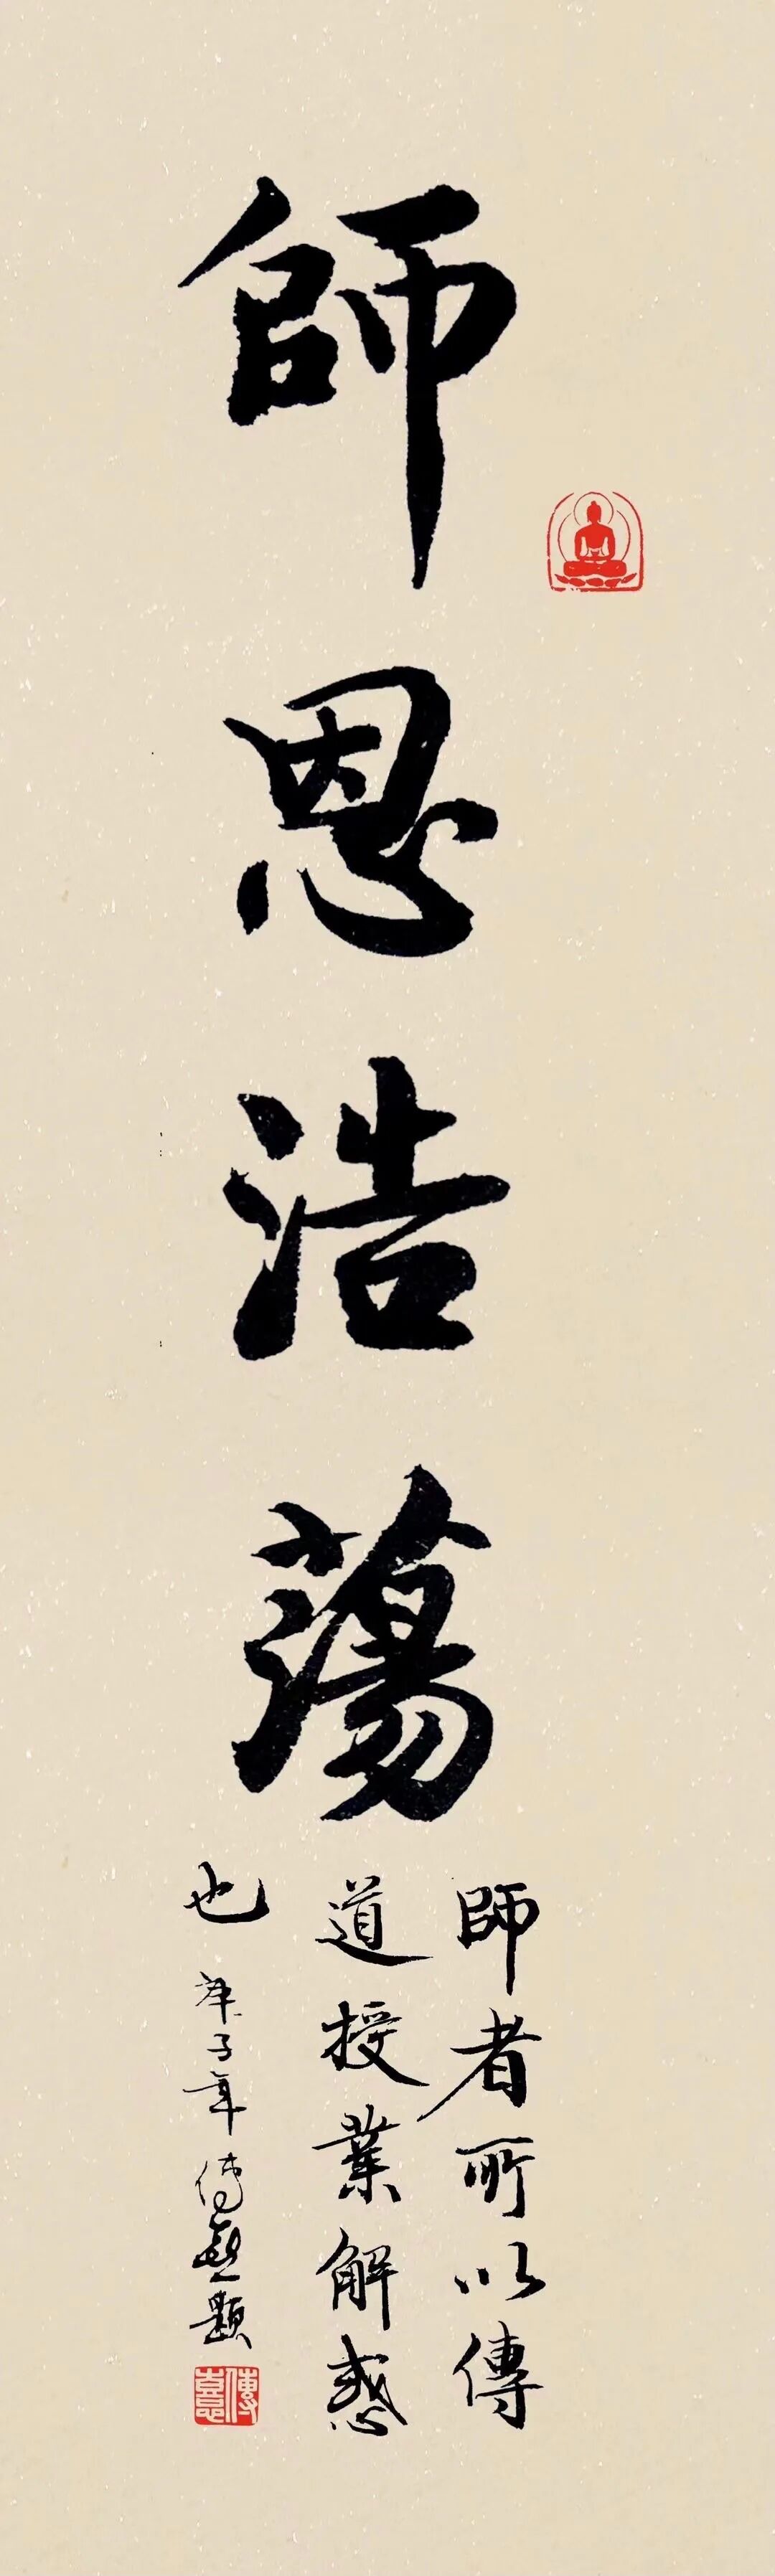 師恩浩蕩
師者所以傳
道授業解惑
也
庚子年傳憙題
傳憙